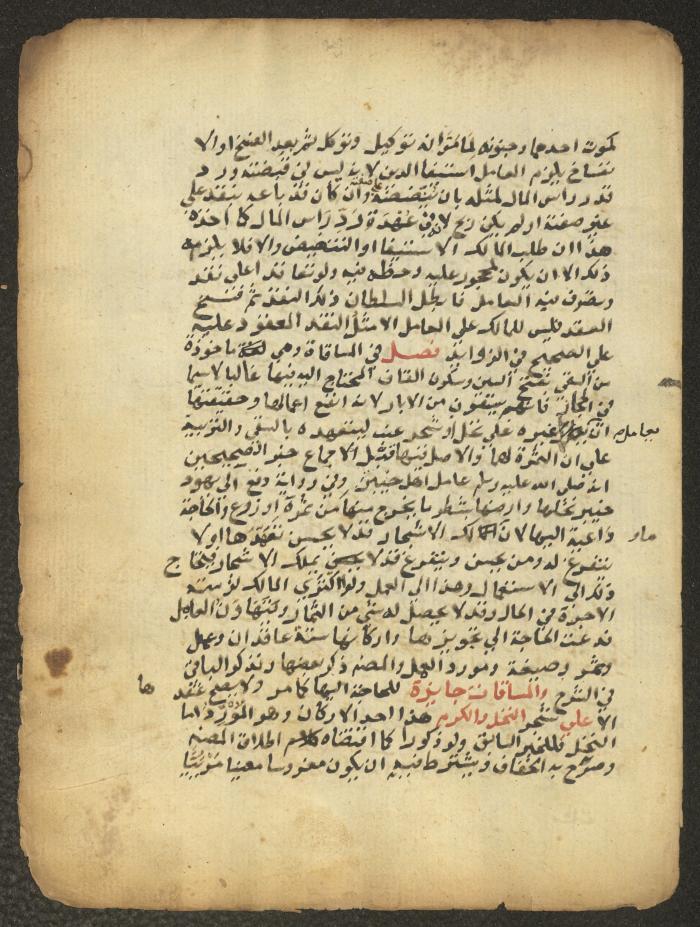 بموت احدهما وجنونه لما مر انه توكيل وتوكل ثم بعد الفسخ او الا
نفساخ يلزم العامل استيفا الدين لانه ليس في قبضته ورد
قدر راس المال لمثله بان ينضضه وان كان قد باعه بنقد علي
غير صفته او لم يكن ربح لانه في عهدة رد راس المال كما اخذه
هذا ان طلب المالك الاستيفا او التنضيض والا فلا يلزمه
ذلك الا ان يكون لمحجور عليه وحظه فيه ولو تعاقدا علي نقد
وتصرف فيه العامل فابطل السلطان ذلك النقد ثم فسخ
العقد فليس للمالك علي العامل الا مثل النقد المعقود عليه
علي الصحيح في الزوايد فصل في المساقاة وهي ماخوذة
من السقي بفتح السين وسكون القاف المحتاج اليه فيها غالبا لاسيما
في الحجاز فانهم يسقون من الابار لانه انفع اعمالها وحقيقتها
ان يعامل غيره علي نخل او شجر عنب ليتعهده بالسقي والتربية
علي ان الثمرة لهما والاصل فيها قبل الاجماع خبر الصحيحين
انه صلي الله عليه وسلم عامل اهل خيبر وفي رواية دفع الي يهود
خيبر نخلها وارضها بشطر ما يخرج منها من ثمرة او زرع والحاجة
داعية اليها لان مالك الاشجار قد لا يحسن تعهدها او لا
يتفرغ له ومن يحسن ويتفرغ قد لا يملك الاشجار فيحتاج
ذلك الي الاستعمال وهذا الي العمل ولو اكتري المالك لزمته
الاجرة في الحال وقد لا يحصل له شي من الثمار ويتهاون العامل
فدعت الحاجة الي تجويزها واركانها ستة عاقدان وعمل
وثمر وصيغة ومورد العمل والمصنف ذكر بعضها ونذكر الباقي
في الشرح والمساقاة جايزة للحاجة اليها كما مر ولا يصح عقدها
الا علي شجر النخل والكرم هذا احد الاركان وهو المورد اما
النخل فللخبر السابق ولو ذكورا كما اقتضاه اطلاق المصنف
وصرح به الخفاف ويشترط فيه ان يكون مغروسا معينا مرئيا